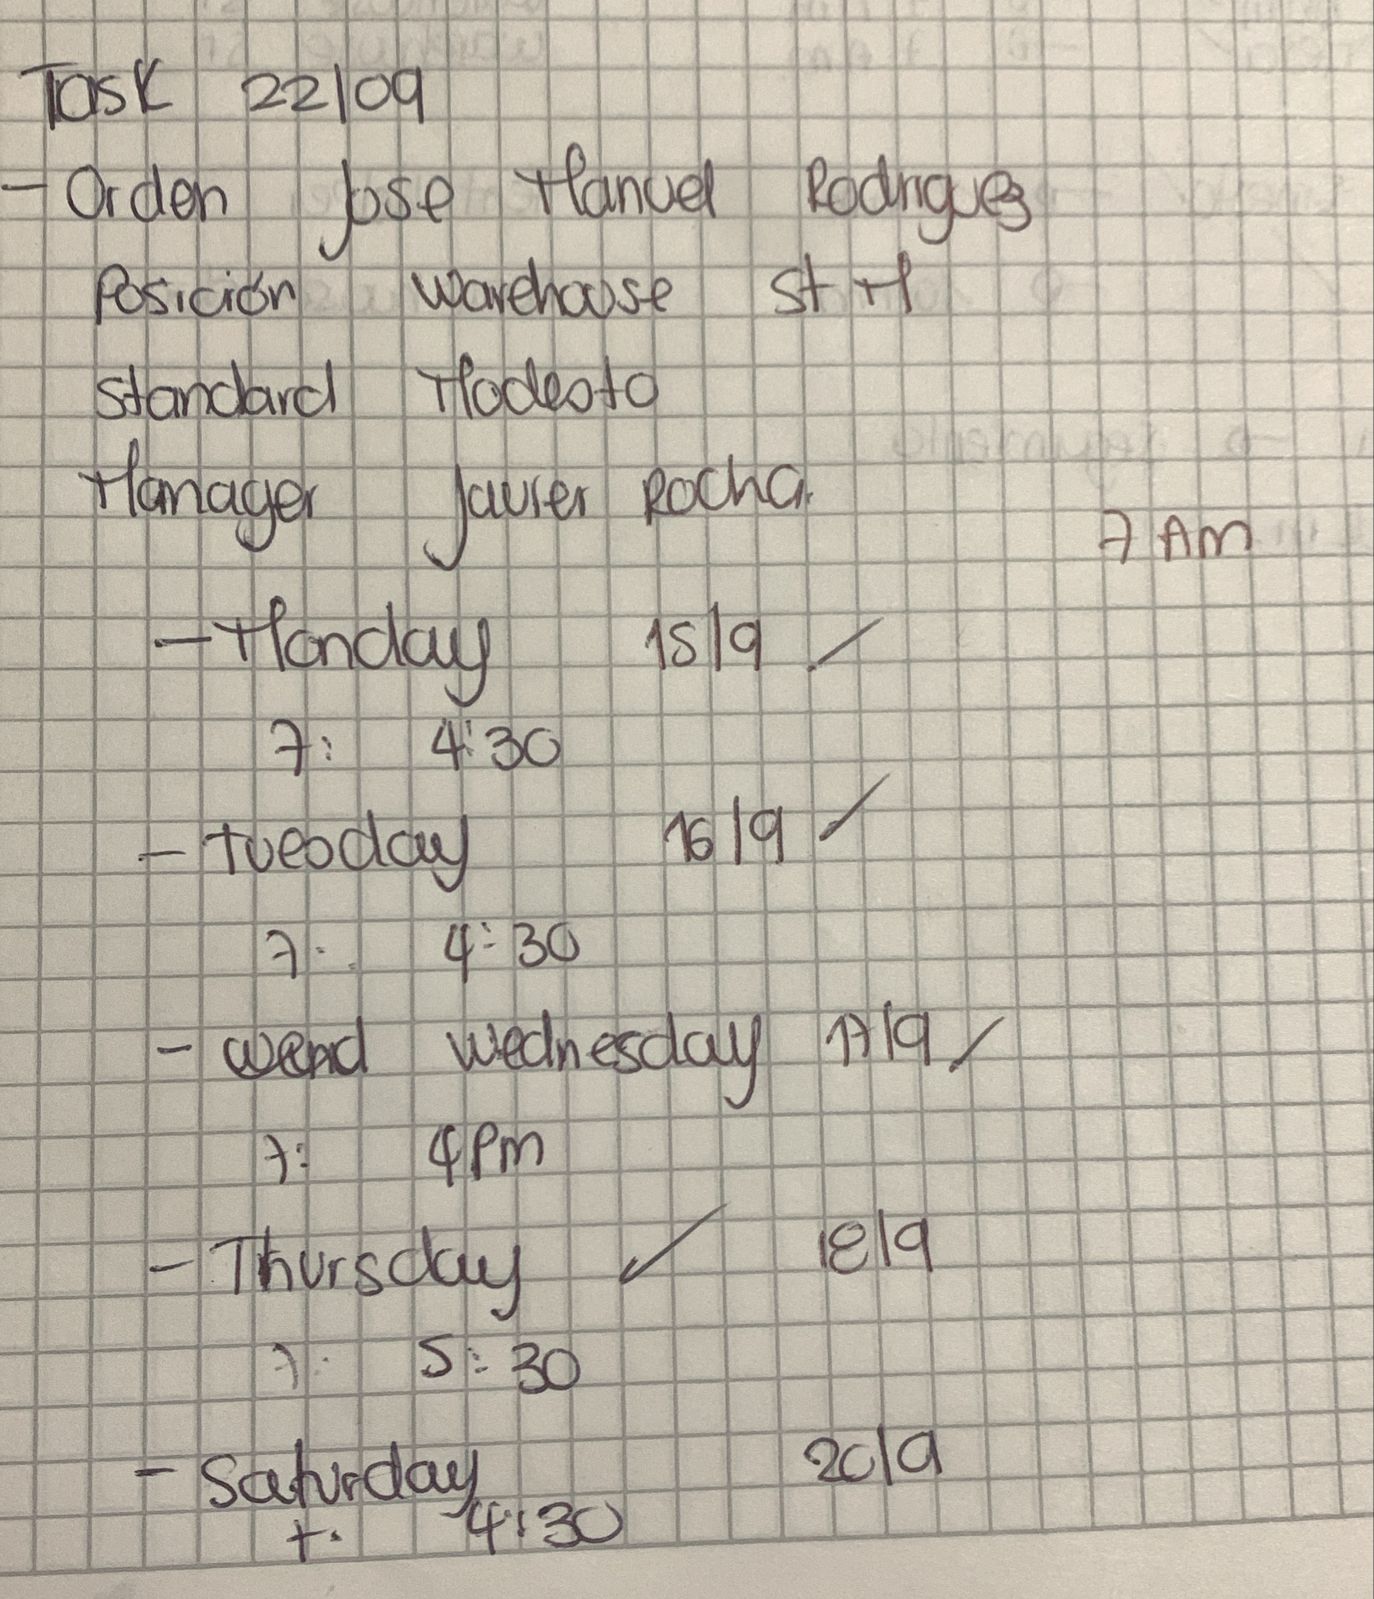 Task 22/09
- Orden Jose Manuel Rodriguez
Posición warehouse St M
Standard Modesto
Manager Javier Rocha.
7 AM
- Monday 15/9
7: 4:30
- Tuesday 16/9
7: 4:30
- wend wednesday 17/9
7: 4 Pm
- Thursday ✓ 18/9
7: 5:30
- Saturday 20/9
7: 4:30